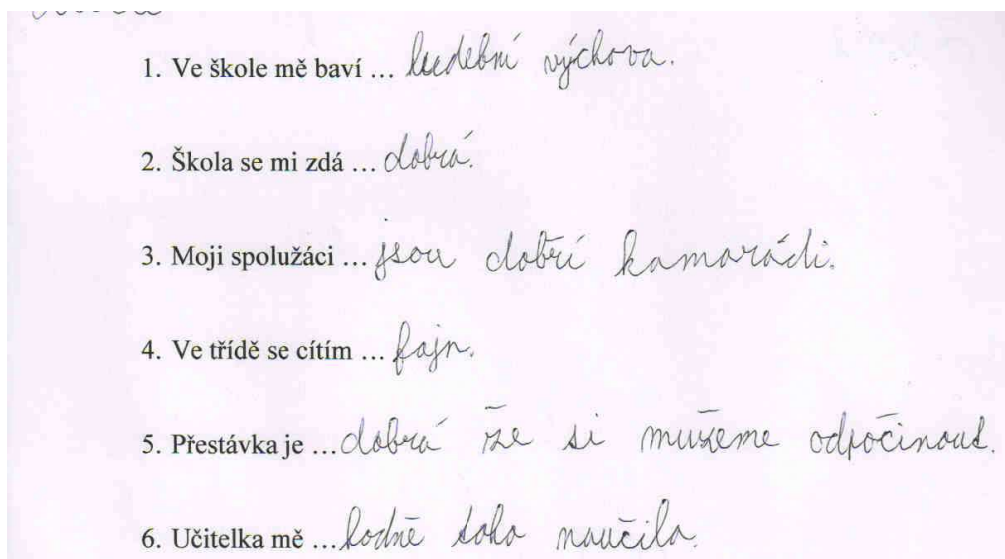 1. Ve škole mě baví ... hudební výchova.
2. Škola se mi zdá ... dobrá.
3. Moji spolužáci ... jsou dobří kamarádi.
4. Ve třídě se cítím ... fajn.
5. Přestávka je ... dobrá že si mužeme odpočinout.
6. Učitelka mě ... hodně toho naučila.